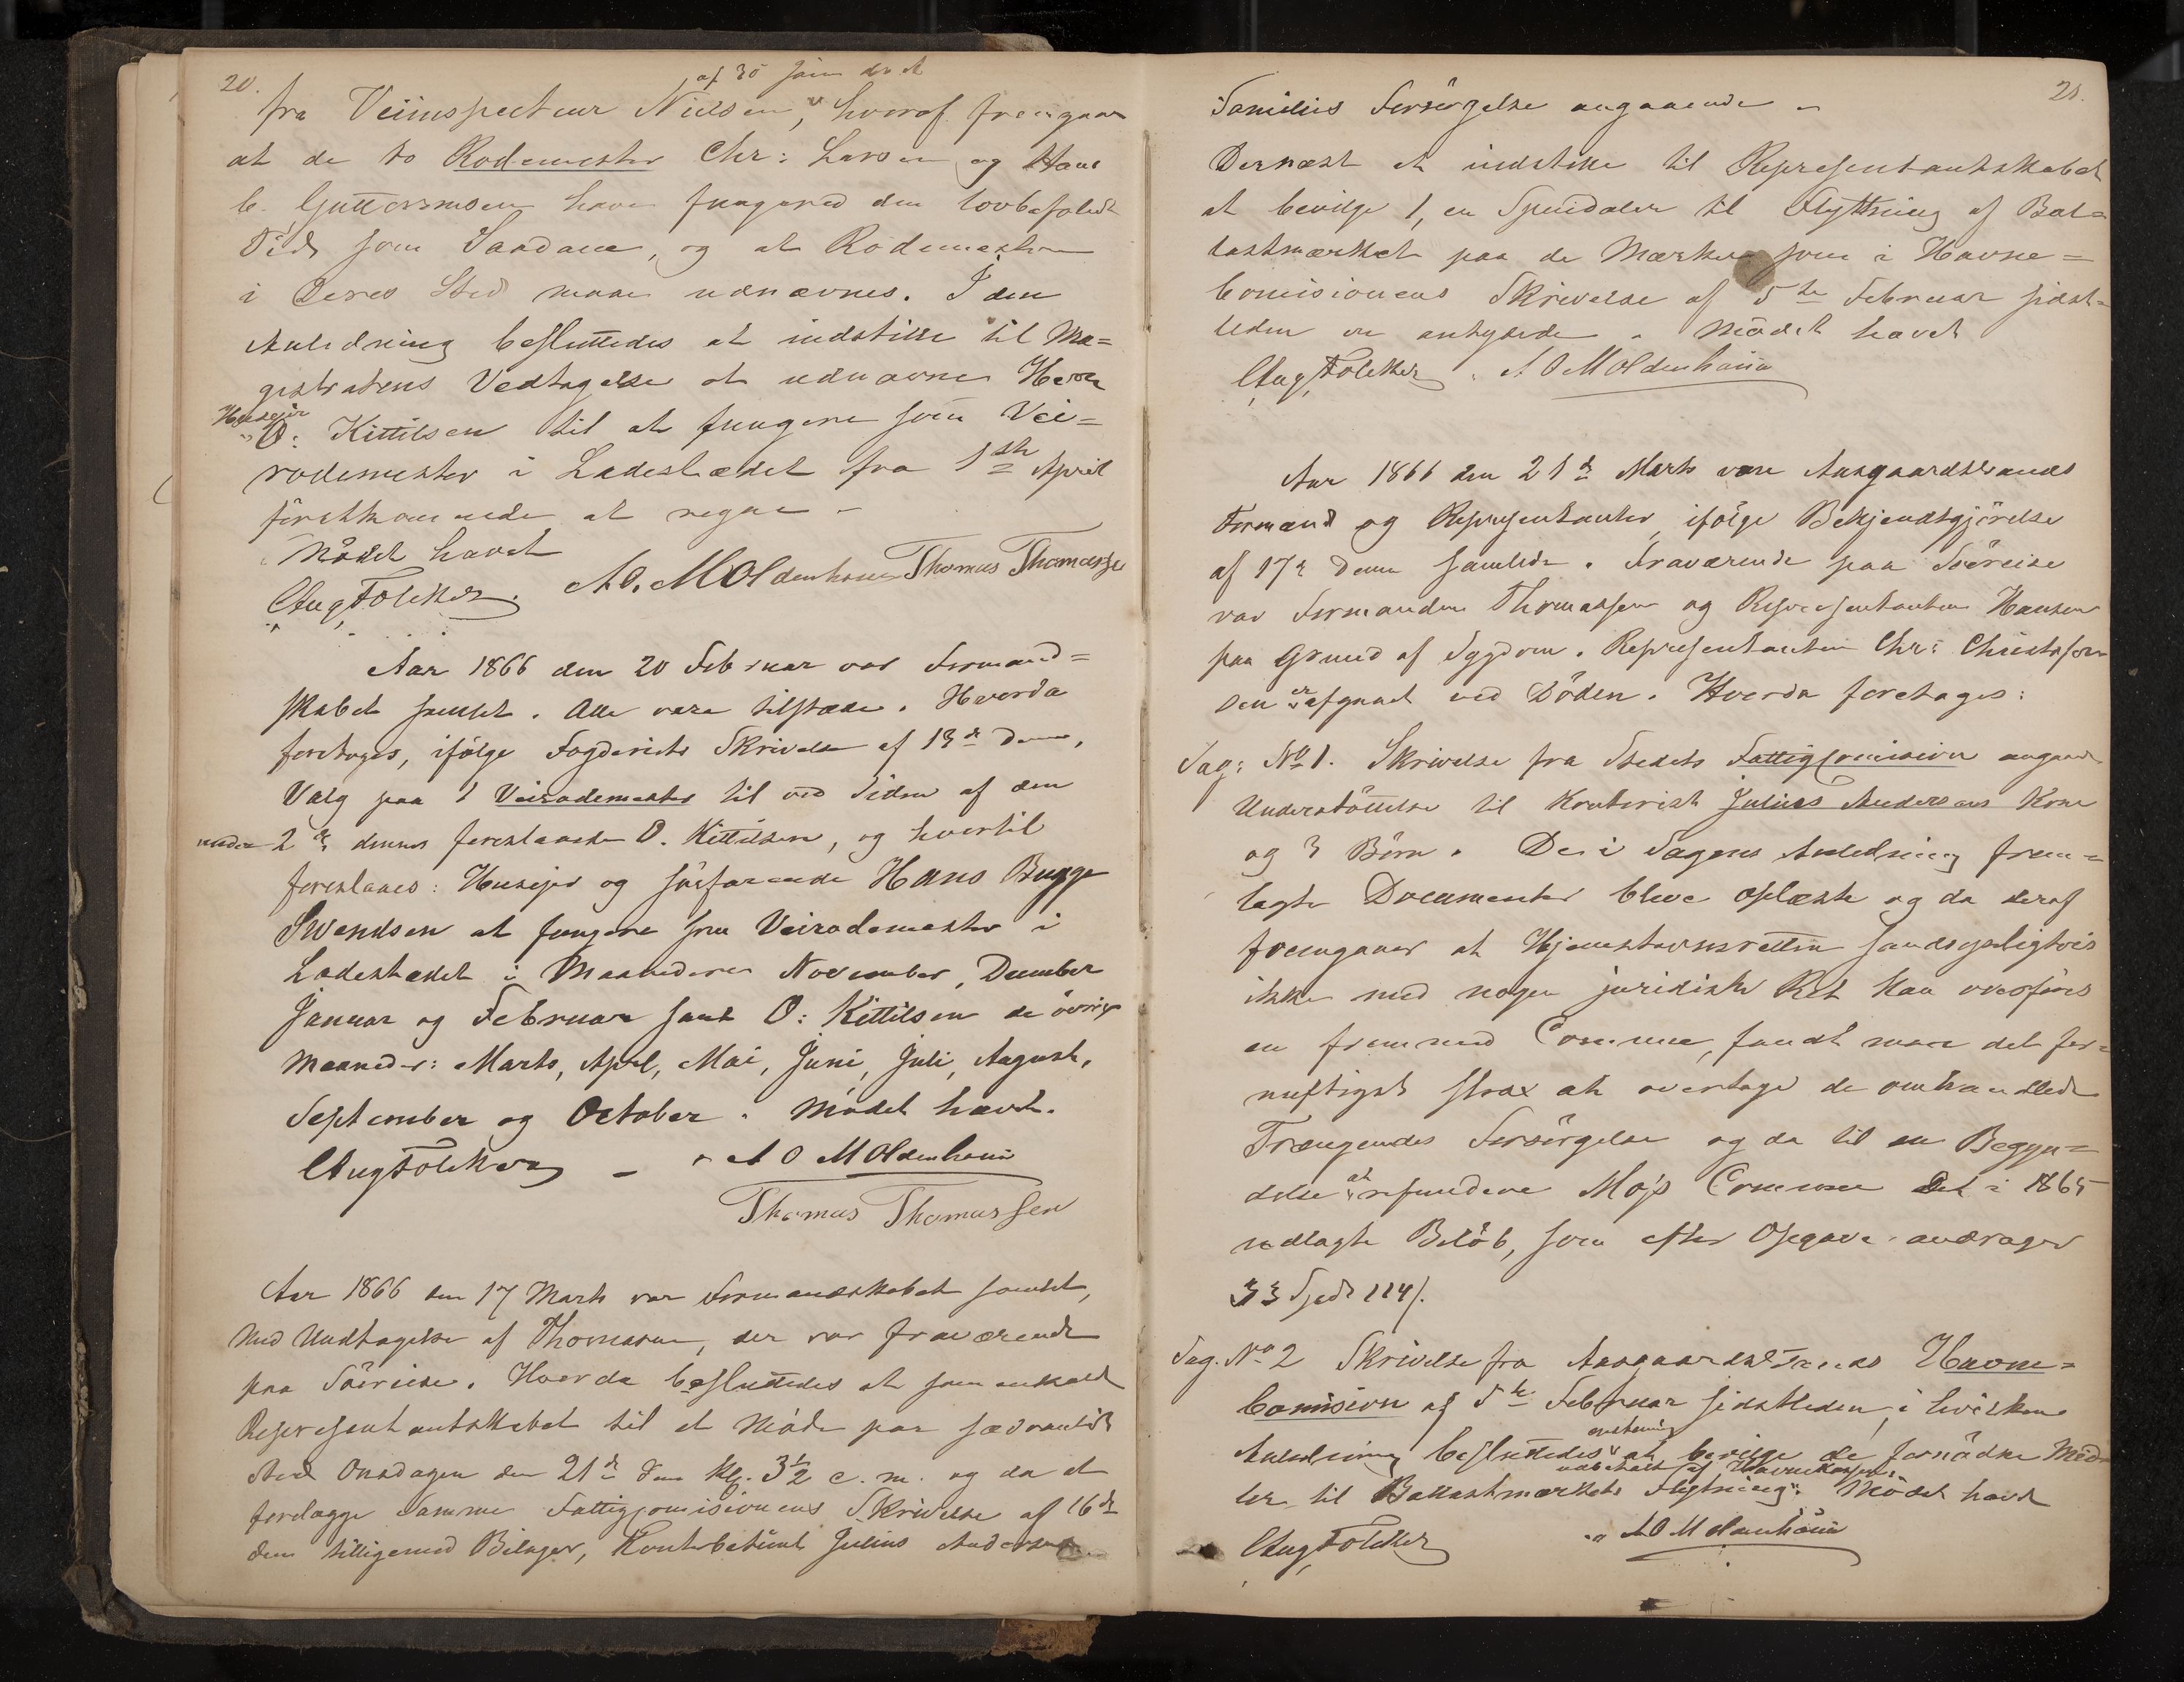 20.
af 30 Janr d. A.
fra Veiinspecteur Nielsen, hvoraf fremgaar
at de to Rodemester Chr: Larsen og Hans
C. Guttormsen have fungered den lovbefalede
Tid som Saadane, og at Rodemestere
i Deres Sted maa udnævnes. I den
Anledning besluttedes at indstille til Ma=
gistratens Vedtagelse at udnævne Herr
Huseier
O: Kittilsen til at fungere som Vei=
rodemester i Ladestædet fra 1ste April
förstkommende at regne –
Mödet hævet
Aug Földker. A O. Moldenhauer Thomas Thomassen
Aar 1866 den 20 Februar var Formand=
skabet samlet. Alle vare tilstæde. Hvorda
foretoges, ifölge Fogderiets Skrivelse af 13de dens,
Valg paa 1 Veirodemester til ved Siden af den
under 2de dennes foreslaaede O. Kittilsen, og hvortil
foreslaaes: Huseier og söefarende Hans Bugge
Svendsen at fungere som Veirodemester i
Ladestædet i Maanederne November, December
Januar og Februar samt O: Kittilsen de övrige
Maaneder: Marts, April, Mai, Juni, Juli, August,
September og October. Mödet hævet.
Aug Földker – A O Moldenhauer
Thomas Thomassen
Aar 1866 den 17 Marts var Formandskabet samlet,
Med Undtagelse af Thomassen, der var fraværende
paa Söereise. Hvorda besluttedes at sammenkalde
Representantskabet til et Möde paa sædvanligt
Sted Onsdagen den 21de dens Kl. 3½ e. m. og da at
forelægge Samme Fattigcomisionens Skrivelse af 16de
dens tilligemed Bilager, Kontorbetjent Julius Andersens
21.
Families Forsörgelse angaaende –
Dernæst at indstille til Representantskabet
at bevilge 1, en Speidaler til Flyttning af Bal=
lastmærket paa de Mærker som i Havne=
Comisionens Skrivelse af 5te Februar sidst=
leden ere antydede. Mödet hævet
Aug Földker. A O Moldenhauer
Aar 1866 den 21de Marts vare Aasgaardstrands
Formænd og Representanter ifölge Bekjendtgjörelse
af 17de dens samlede. Fraværende paa Söereise
var Formanden Thomassen og Representanten Hansen
paa Grund af Sygdom. Representanten Chr: Christofer=
sen er afgaaet ved Döden. Hvorda foretoges:
Sag: No 1. Skrivelse fra Stedets Fattigcomision angaaende
Understöttelse til Kontorist Julius Andersens Kone
og 3 Börn. De i Sagens Anledning frem=
lagte Documenter bleve oplæste og da deraf
fremgaaer at Hjemstavnsretten sandsynligtvis
ikke med nogen juridiske Ret kan overföres
en fremmed Comune, fandt man det for=
nuftigst strax at overtage de omhandlede
Trængendes Forsörgelse og da til en Begyn=
delse at refundere Moss Comune det i 1865
udlagte Belöb, som efter Opgave andrager
33 Spd 114 s.
Sag. No 2 Skrivelse fra Aasgaardstrands Havne=
Comision af 5te Februar sidstleden i hvilken
Anledning besluttedes at bevilge de fornödne Mid=
udbetalt af Havnekassen
ler til Ballastmærkets Flytning. Mödet hævet
Aug Földker A O Moldenhauer